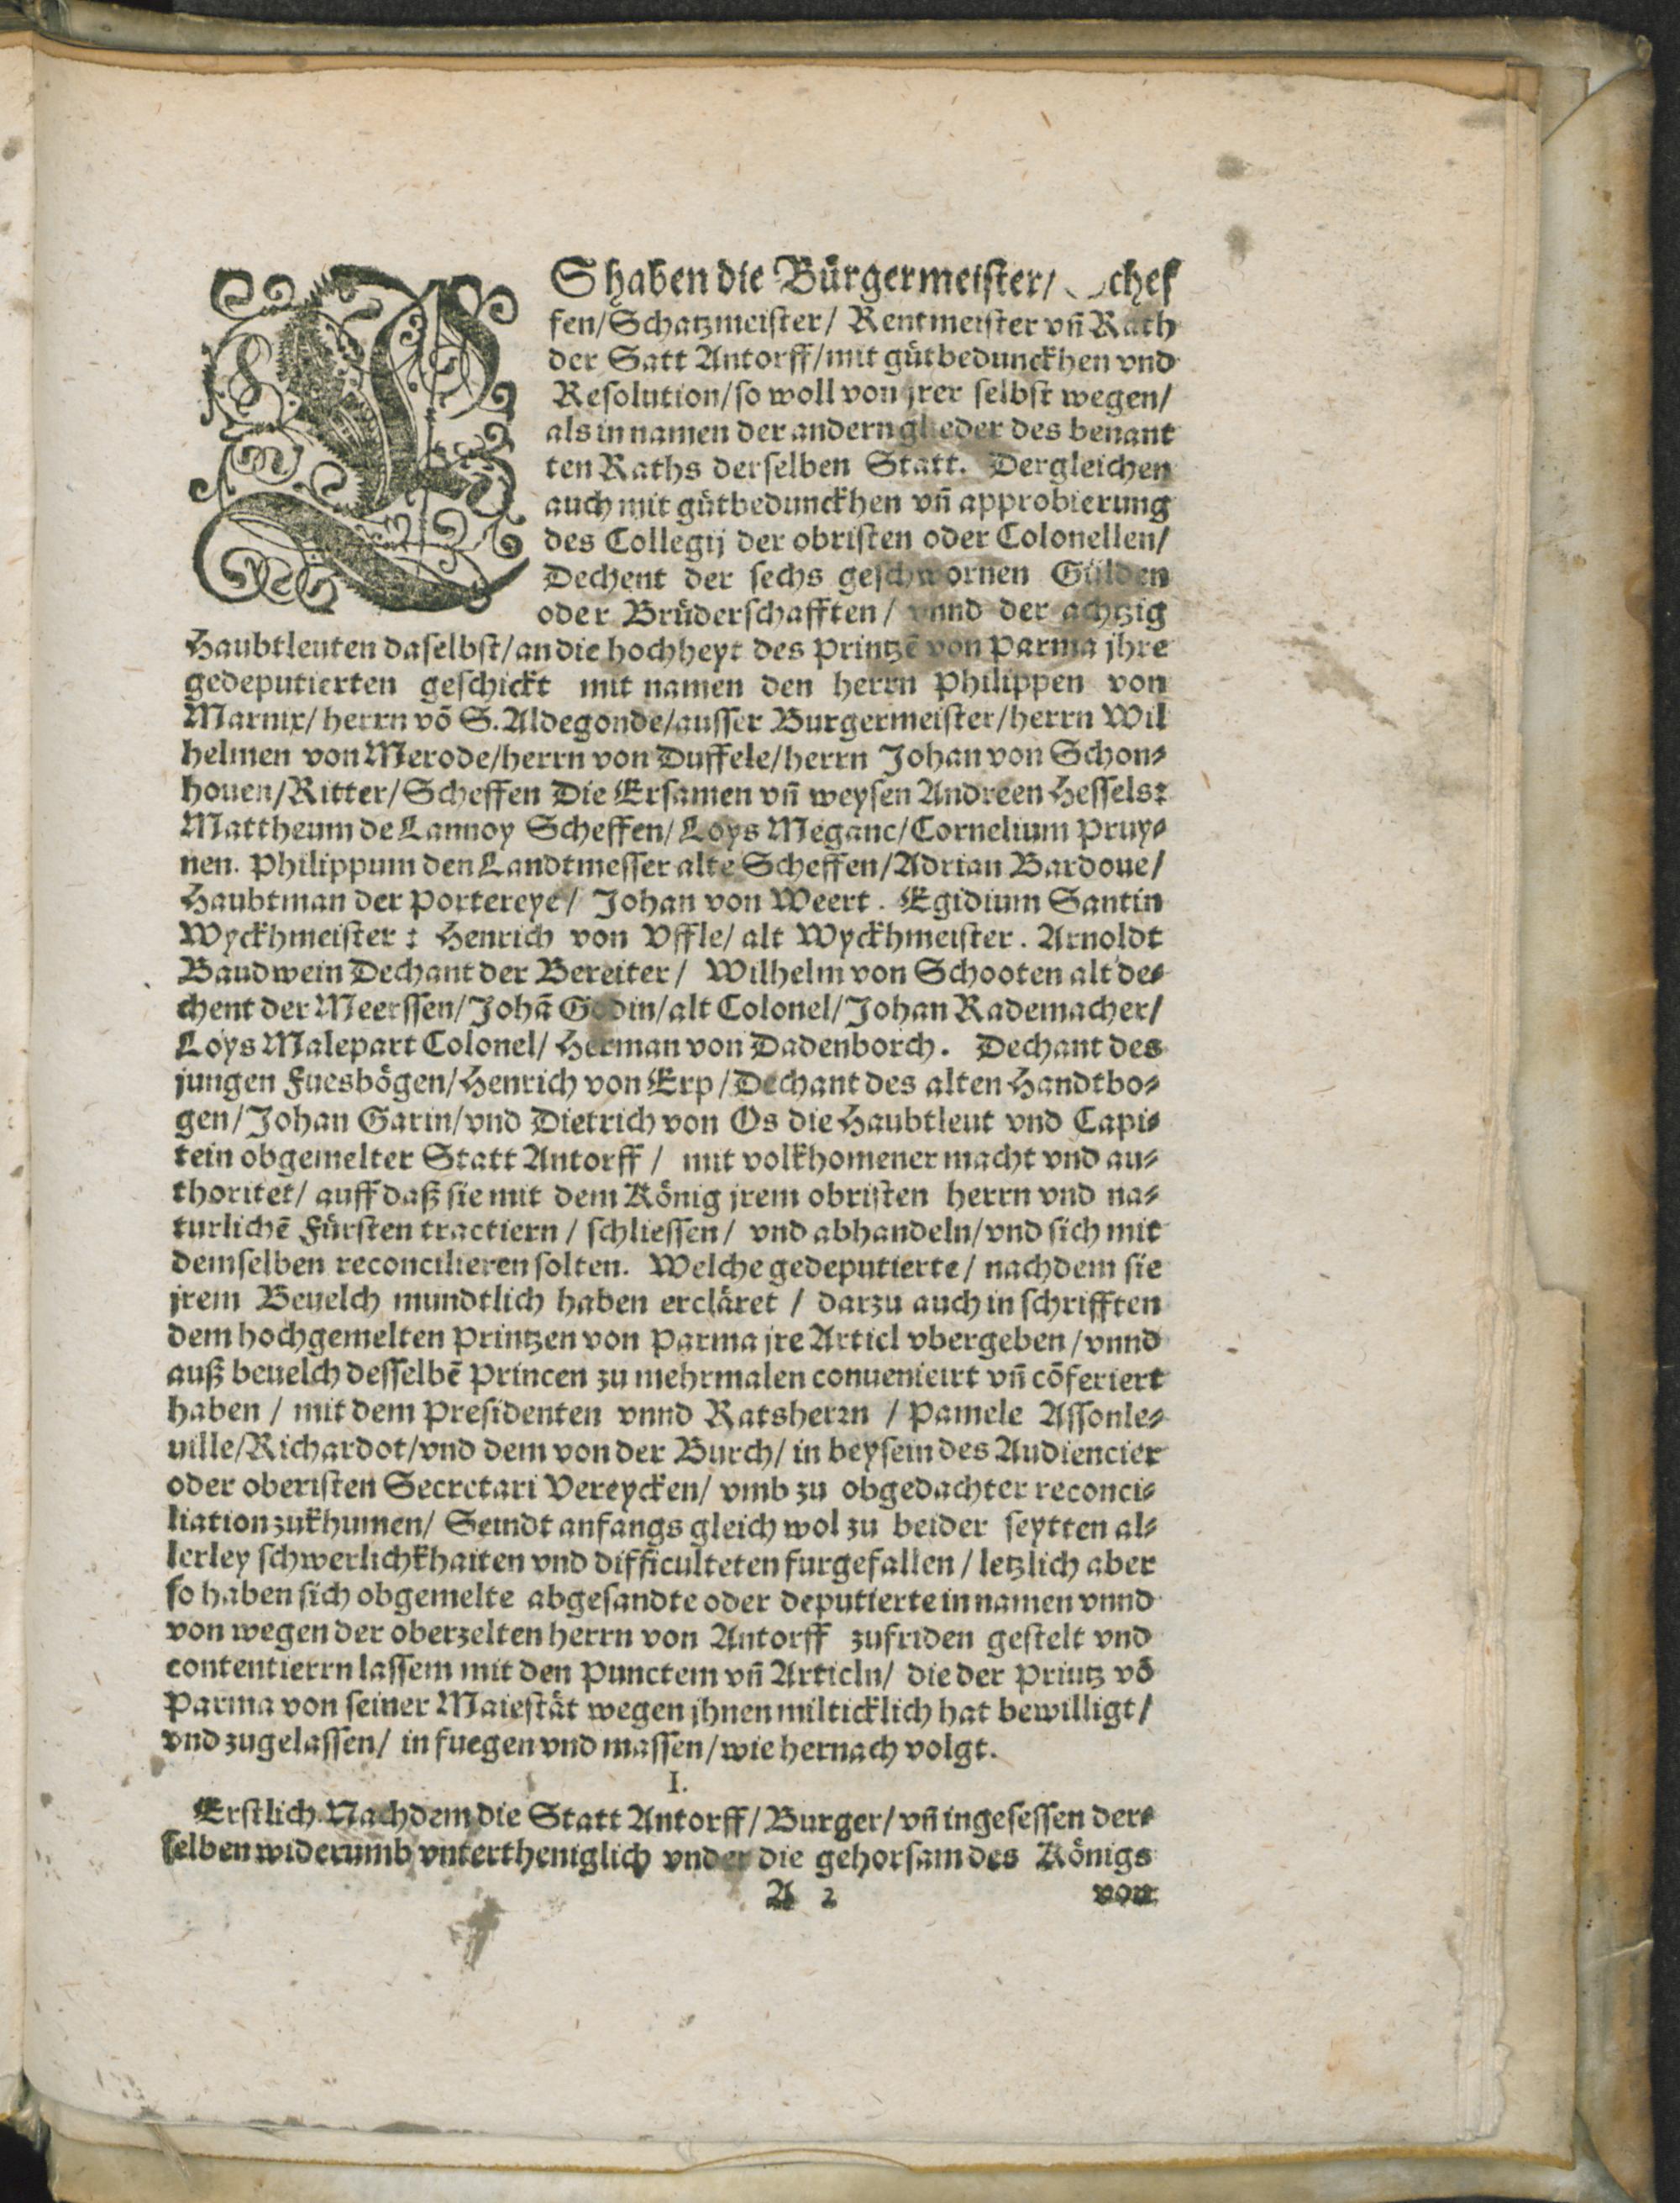 ES haben die Bürgermeister/ Schef
fen/Schatzmeister/ Rentmeister vñ Rath
der Satt Antorff/mit gůtbedunckhen vnd
Resolution/so woll von jrer selbst wegen/
als in namen der andern glieder des benant
ten Raths derselben Statt. Dergleichen
auch mit gůtbedunckhen vñ approbierung
des Collegij der obristen oder Colonellen/
Dechent der sechs geschwornen Gülden
oder Brüderschafften/ vnnd der achtzig
Haubtleuten daselbst/an die hochheyt des Printzē von Parma jhre
gedeputierten geschickt mit namen den herrn Philippen von
Marnix/ herrn vō S. Aldegonde/ausser Burgermeister/herrn Wil
helmen von Merode/herrn von Duffele/herrn Johan von Schon⸗
houen/Ritter/Scheffen Die Ersamen vñ weysen Andreen Hessels:
Mattheum de Lannoy Scheffen/ Loys Meganc/Cornelium Pruy⸗
nen. Philippum den Landtmesser alte Scheffen/Adrian Bardoue/
Haubtman der Portereye/ Johan von Weert. Egidium Santin
Wyckhmeister : Henrich von Vffle/ alt Wyckhmeister. Arnoldt
Baudwein Dechant der Bereiter/ Wilhelm von Schooten alt de⸗
chent der Meerssen/Johā Godin/alt Colonel/Johan Rademacher/
Loys Malepart Colonel/ Herman von Dadenborch. Dechant des
jungen Fuesbögen/Henrich von Erp/Dechant des alten Handtbo⸗
gen/Johan Garin/vnd Dietrich von Os die Haubtleut vnd Capi⸗
tein obgemelter Statt Antorff / mit volkhomener macht vnd au⸗
thoritet/ auff daß sie mit dem König jrem obristen herrn vnd na⸗
turlichē Fürsten tractiern / schliessen/ vnd abhandeln/vnd sich mit
demselben reconcilieren solten. Welche gedeputierte/ nachdem sie
jrem Beuelch mundtlich haben ercläret / darzu auch in schrifften
dem hochgemelten Printzen von Parma jre Articl vbergeben/vnnd
auß beuelch desselbē Princen zu mehrmalen conuenieirt vñ cōferiert
haben / mit dem Presidenten vnnd Ratsherrn / Pamele Assonle⸗
uille/Richardot/vnd dem von der Burch/ in beysein des Audiencier
oder oberisten Secretari Vereycken/ vmb zu obgedachter reconci⸗
liation zukhumen/ Seindt anfangs gleich wol zu beider seytten al⸗
lerley schwerlichkhaiten vnd difficulteten furgefallen / letzlich aber
so haben sich obgemelte abgesandte oder deputierte in namen vnnd
von wegen der oberzelten herrn von Antorff zufriden gestelt vnd
contentierrn lassem mit den Punctem vñ Articln/ die der Printz vō
Parma von seiner Maiestät wegen jhnen milticklich hat bewilligt/
vnd zugelassen/ in fuegen vnd massen/wie hernach volgt.
I.
Erstlich Nachdem die Statt Antorff/Burger/vñ ingesessen der⸗
selben widerumb vntertheniglich vnder die gehorsam des Königs
A 2 von